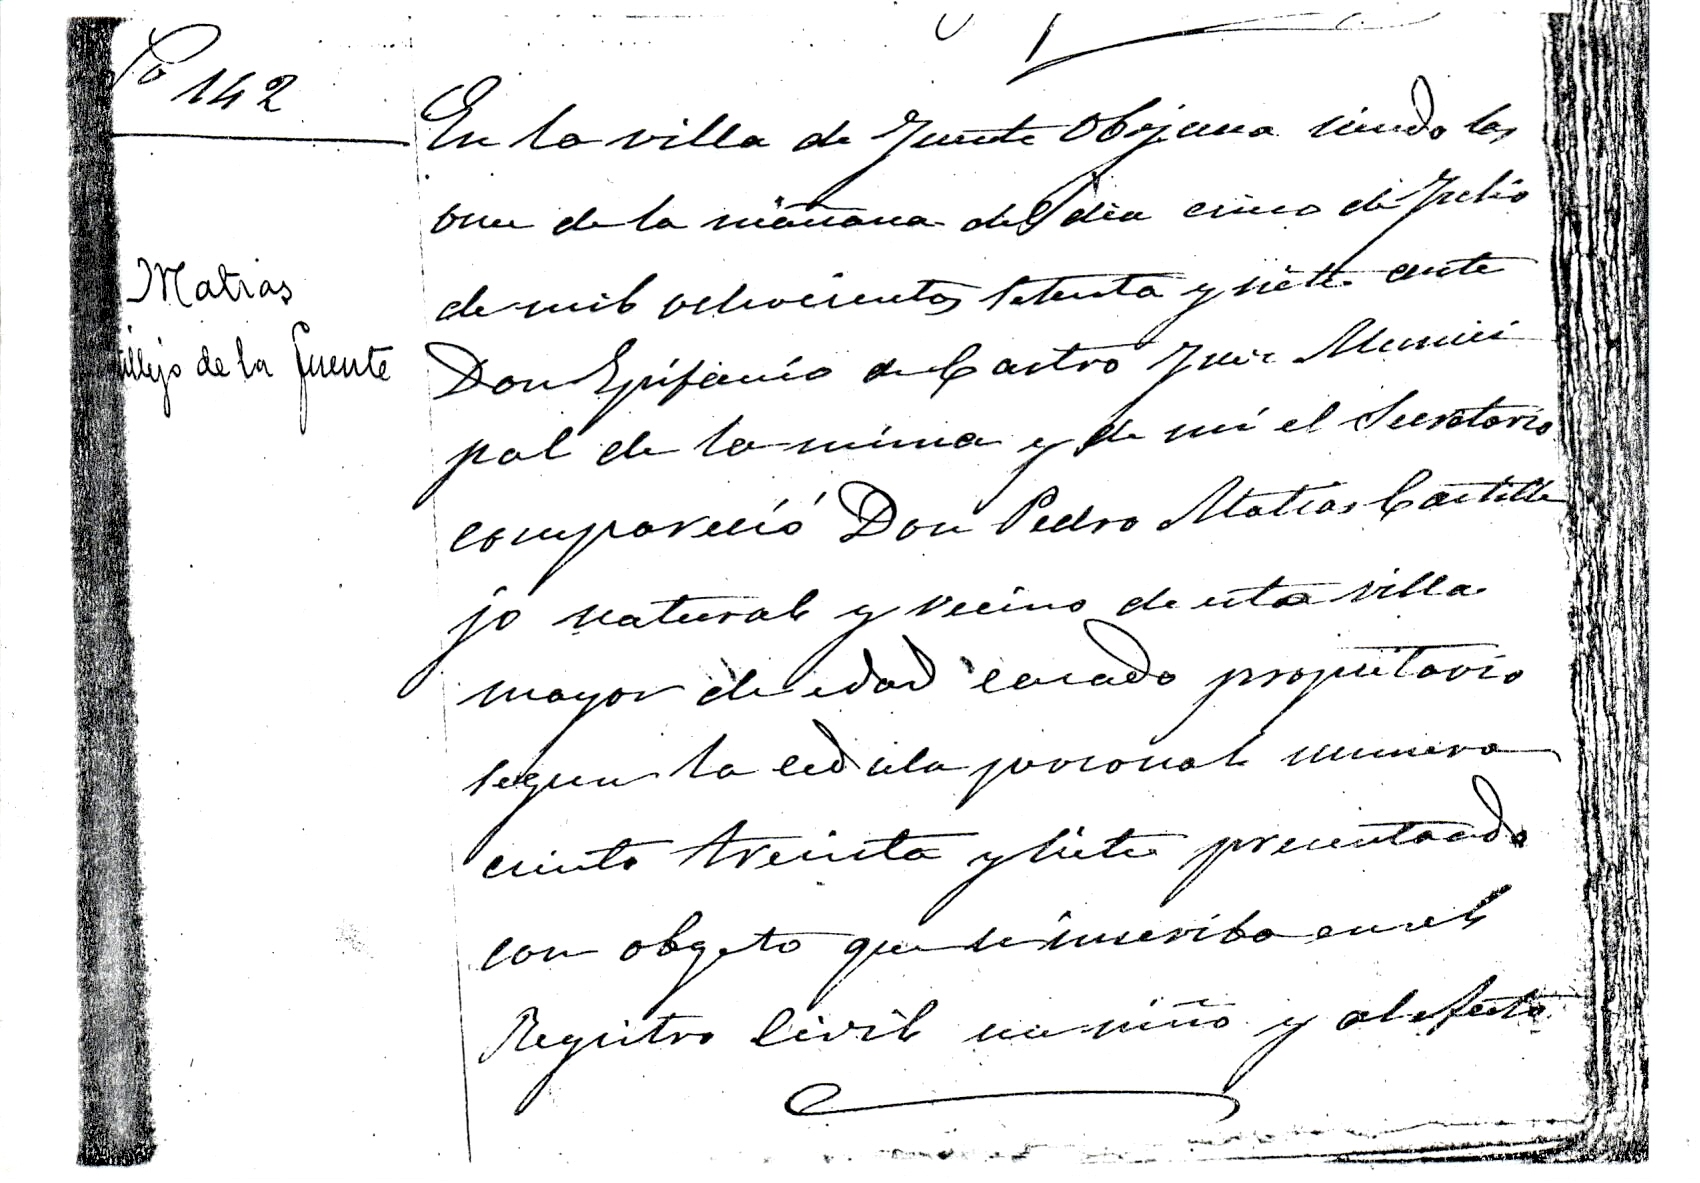 Nº 142
Matias
tillejo de la Fuente
En la villa de Fuente Obejuna siendo las
once de la mañana del dia cinco de Julio
de mil ochocientos setenta y siete ante
Don Epifanio de Castro Juez Munici
pal de la misma y de mi el Secretario
compareció Don Pedro Matias Castille
jo natural y vecino de esta villa
mayor de edad casado propietario
segun la cedula personal numero
ciento treinta y siete presentando
con obgeto que se inscriba en el
Registro Civil un niño y al efecto